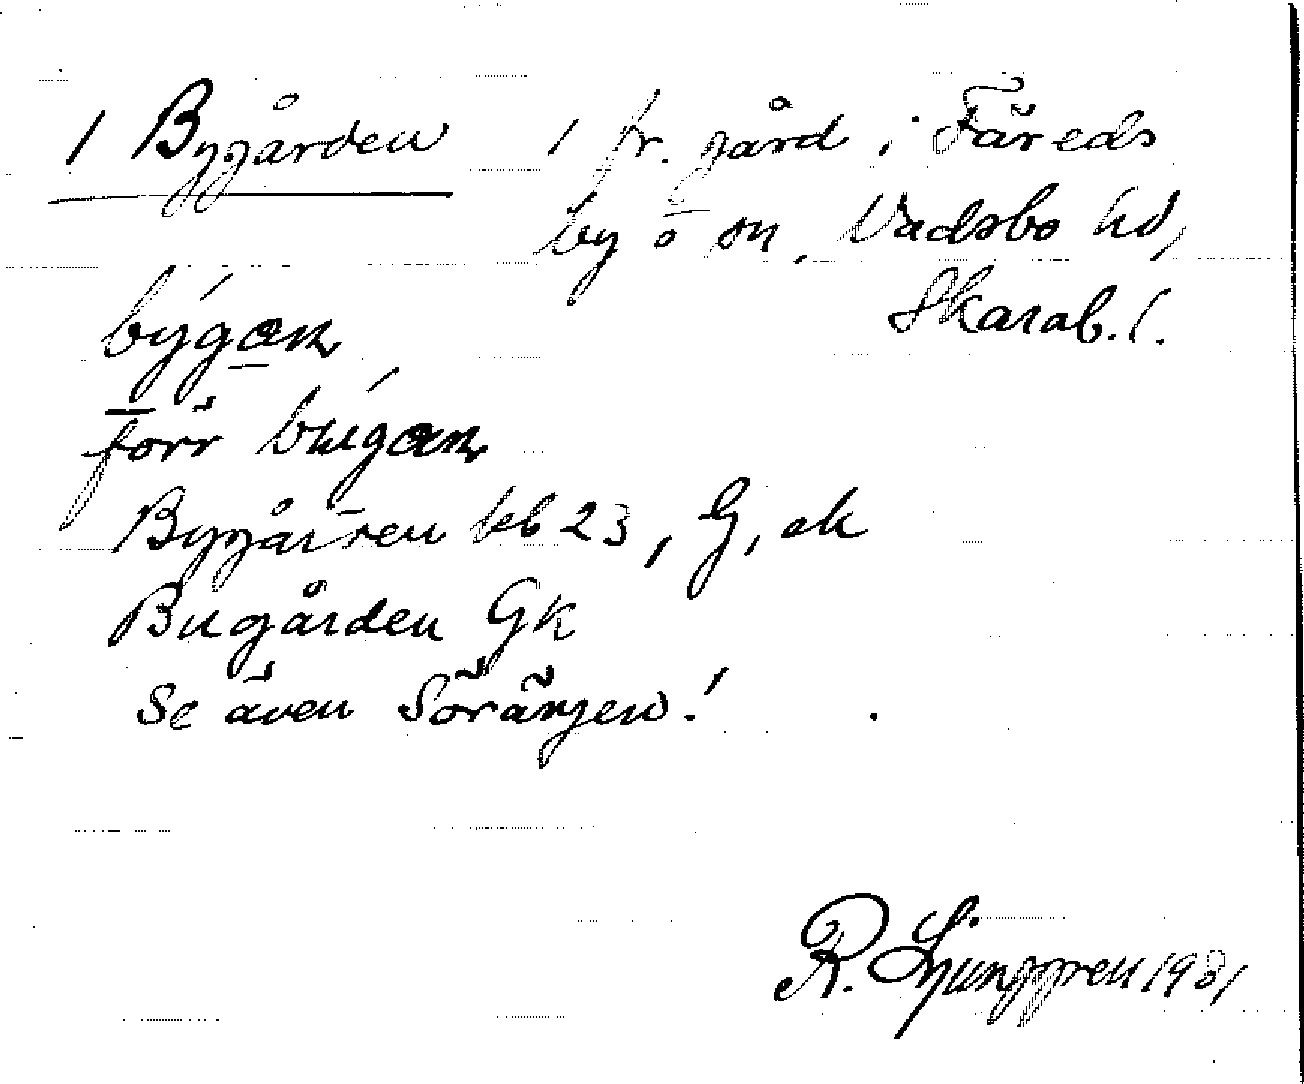 1 Bygården 1 fr. gård i Färeds
by o sn, Vadsbo hd,
Skarab. l.
býgan
förr búgan
Bygården 23, G, ek
Bugården Gk
Se även Sörängen!
R. Ljunggren 1981